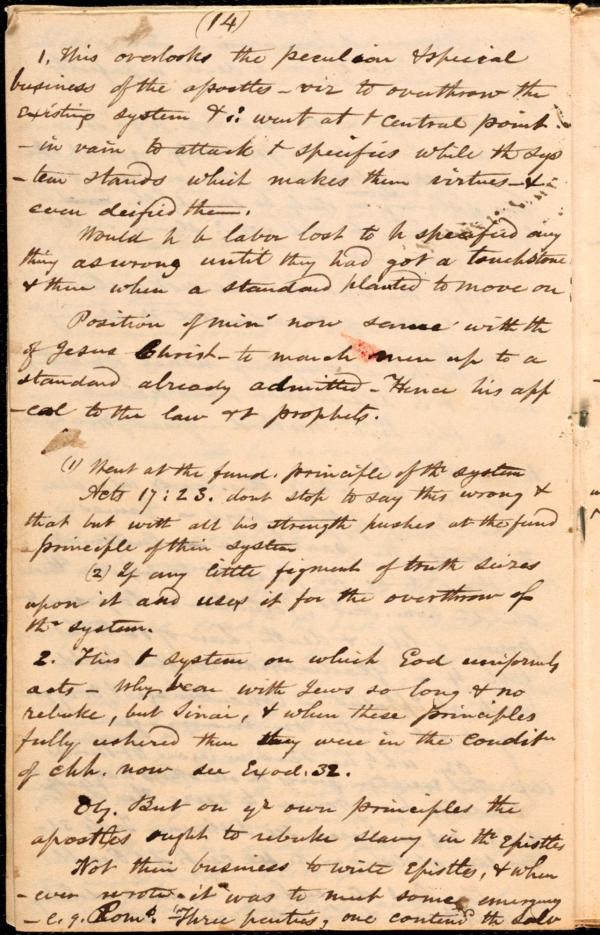 (14)
1. This overlooks the peculiar & special
business of the apostles - viz to overthrow the
existing system & ∴ went at t central point.
- in vain to attack t specifics while th sys
-tem stands which makes them virtues - &
even deified them.
Would h b labor lost to h specified any
thing as wrong until they had got a touchstone
& then when a standard planted to move on
Position of min^s now same with th^t
of Jesus Christ - to march men up to a
standard already admitted - Hence his app
-eal to the law & t prophets.
(1) Went at the fund. principle of th^r system
Acts 17:23. dont stop to say this wrong &
that but with all his strength pushes at the fund
principle of their system
(2) If any little figment of truth seizes
upon it and uses it for the overthrow of
th^r system.
2. This t system on which God uniformly
acts - Why bear with Jews so long & no
rebuke, but Sinai, & when these principles
fully ushered then they were in the condit^n
of chh. now see Exod. 32.
Obj. But on y^r own principles the
apostles ought to rebuke slavy in th^r Epistles
Not their business to write Epistles, & when
-ever wrote it was to meet some emergency
- e.g. Rom^s. Three parties, one contend^g th salv